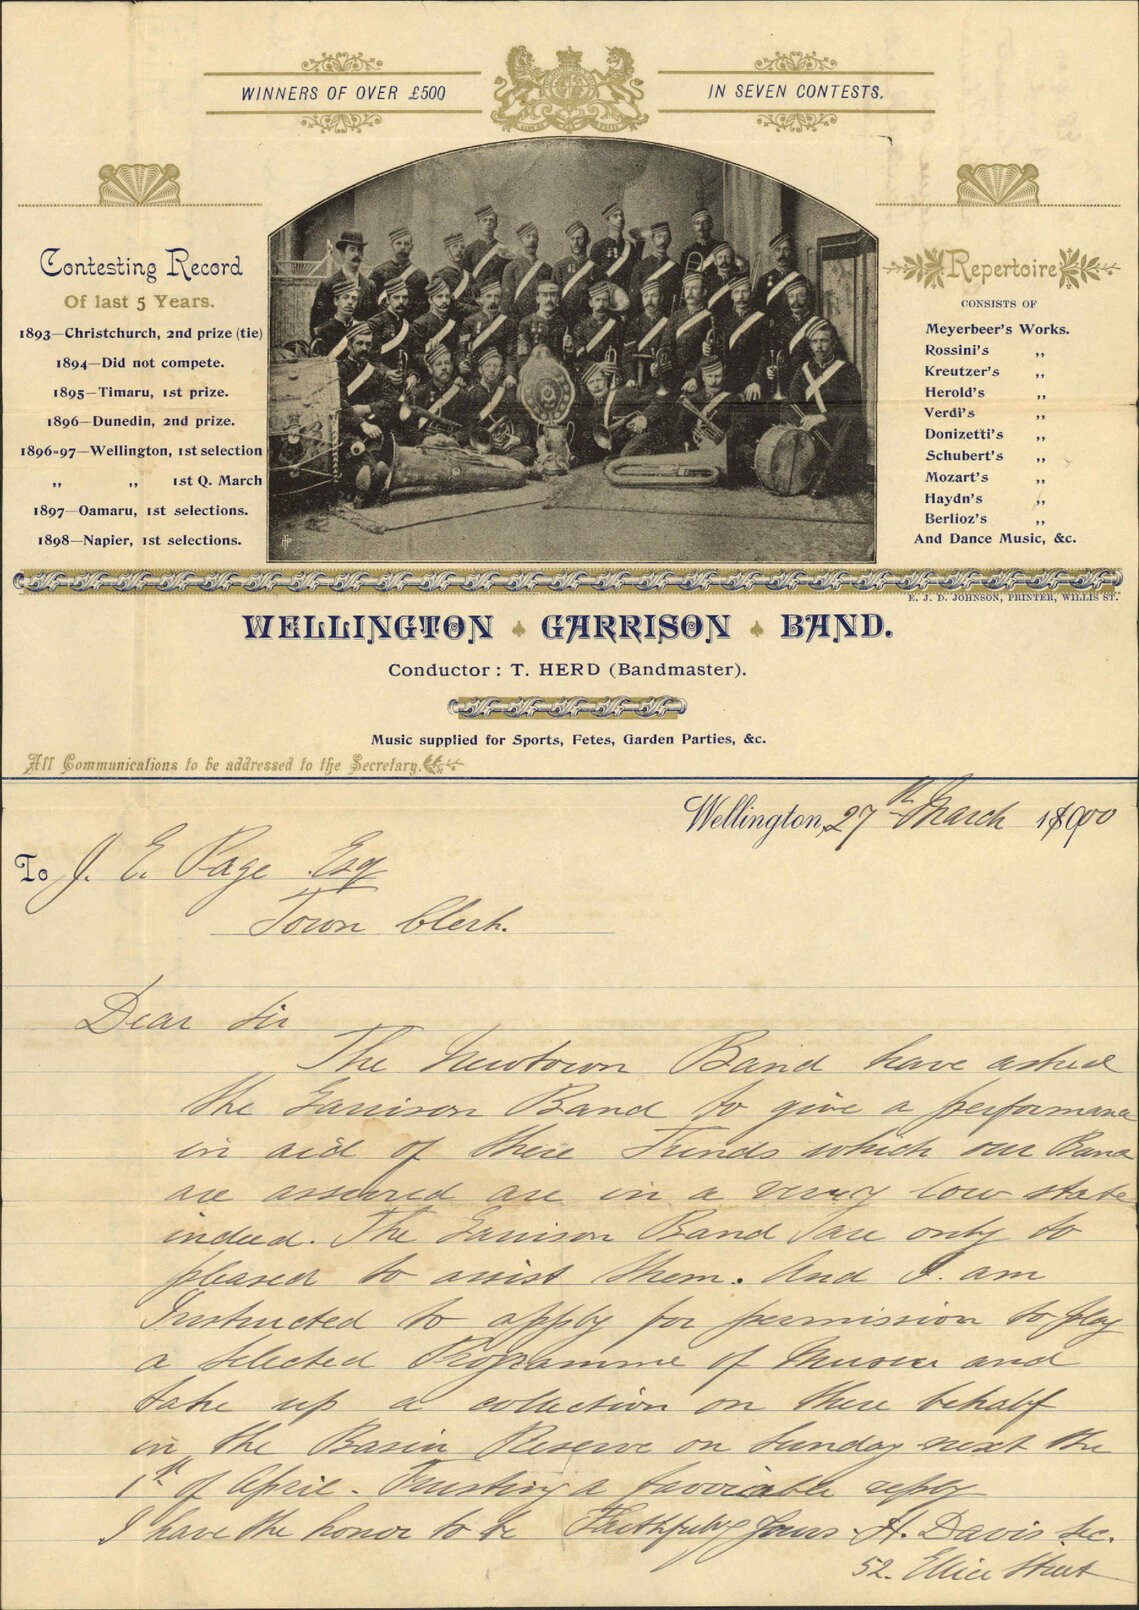 WINNERS OF OVER £500
IN SEVEN CONTESTS.
Contesting Record
Of last 5 Years.
1893—Christchurch, 2nd prize (tie)
1894—Did not compete.
1895—Timaru, 1st prize.
1896—Dunedin, 2nd prize.
1896=97—Wellington, 1st selection
,, ,, 1st Q. March
1897—Oamaru, 1st selections.
1898—Napier, 1st selections.
Repertoire
CONSISTS OF
Meyerbeer's Works.
Rossini's ,,
Kreutzer's ,,
Herold's ,,
Verdi's ,,
Donizetti's ,,
Schubert's ,,
Mozart's ,,
Haydn's ,,
Berlioz's ,,
And Dance Music, &c.
E. J. D. JOHNSON, PRINTER, WILLIS ST.
WELLINGTON GARRISON BAND.
Conductor: T. HERD (Bandmaster).
Music supplied for Sports, Fetes, Garden Parties, &c.
All Communications to be addressed to the Secretary.
Wellington, 27th March 1900
To J. E. Page Esq
Town Clerk.
Dear Sir
The Newtown Band have asked
the Garrison Band to give a performance
in aid of there Funds which our Band
are assured are in a very low state
indeed. The Garrison Band are only to
pleased to assist them. And I am
Instructed to apply for permission to play
a selected Programme of Music and
take up a collection on there behalf
in the Basin Reserve on Sunday next the
1st of April. Trusting a favorable reply
I have the honor to be Faithfully Yours H. Davis Sec.
52. Ellice Street